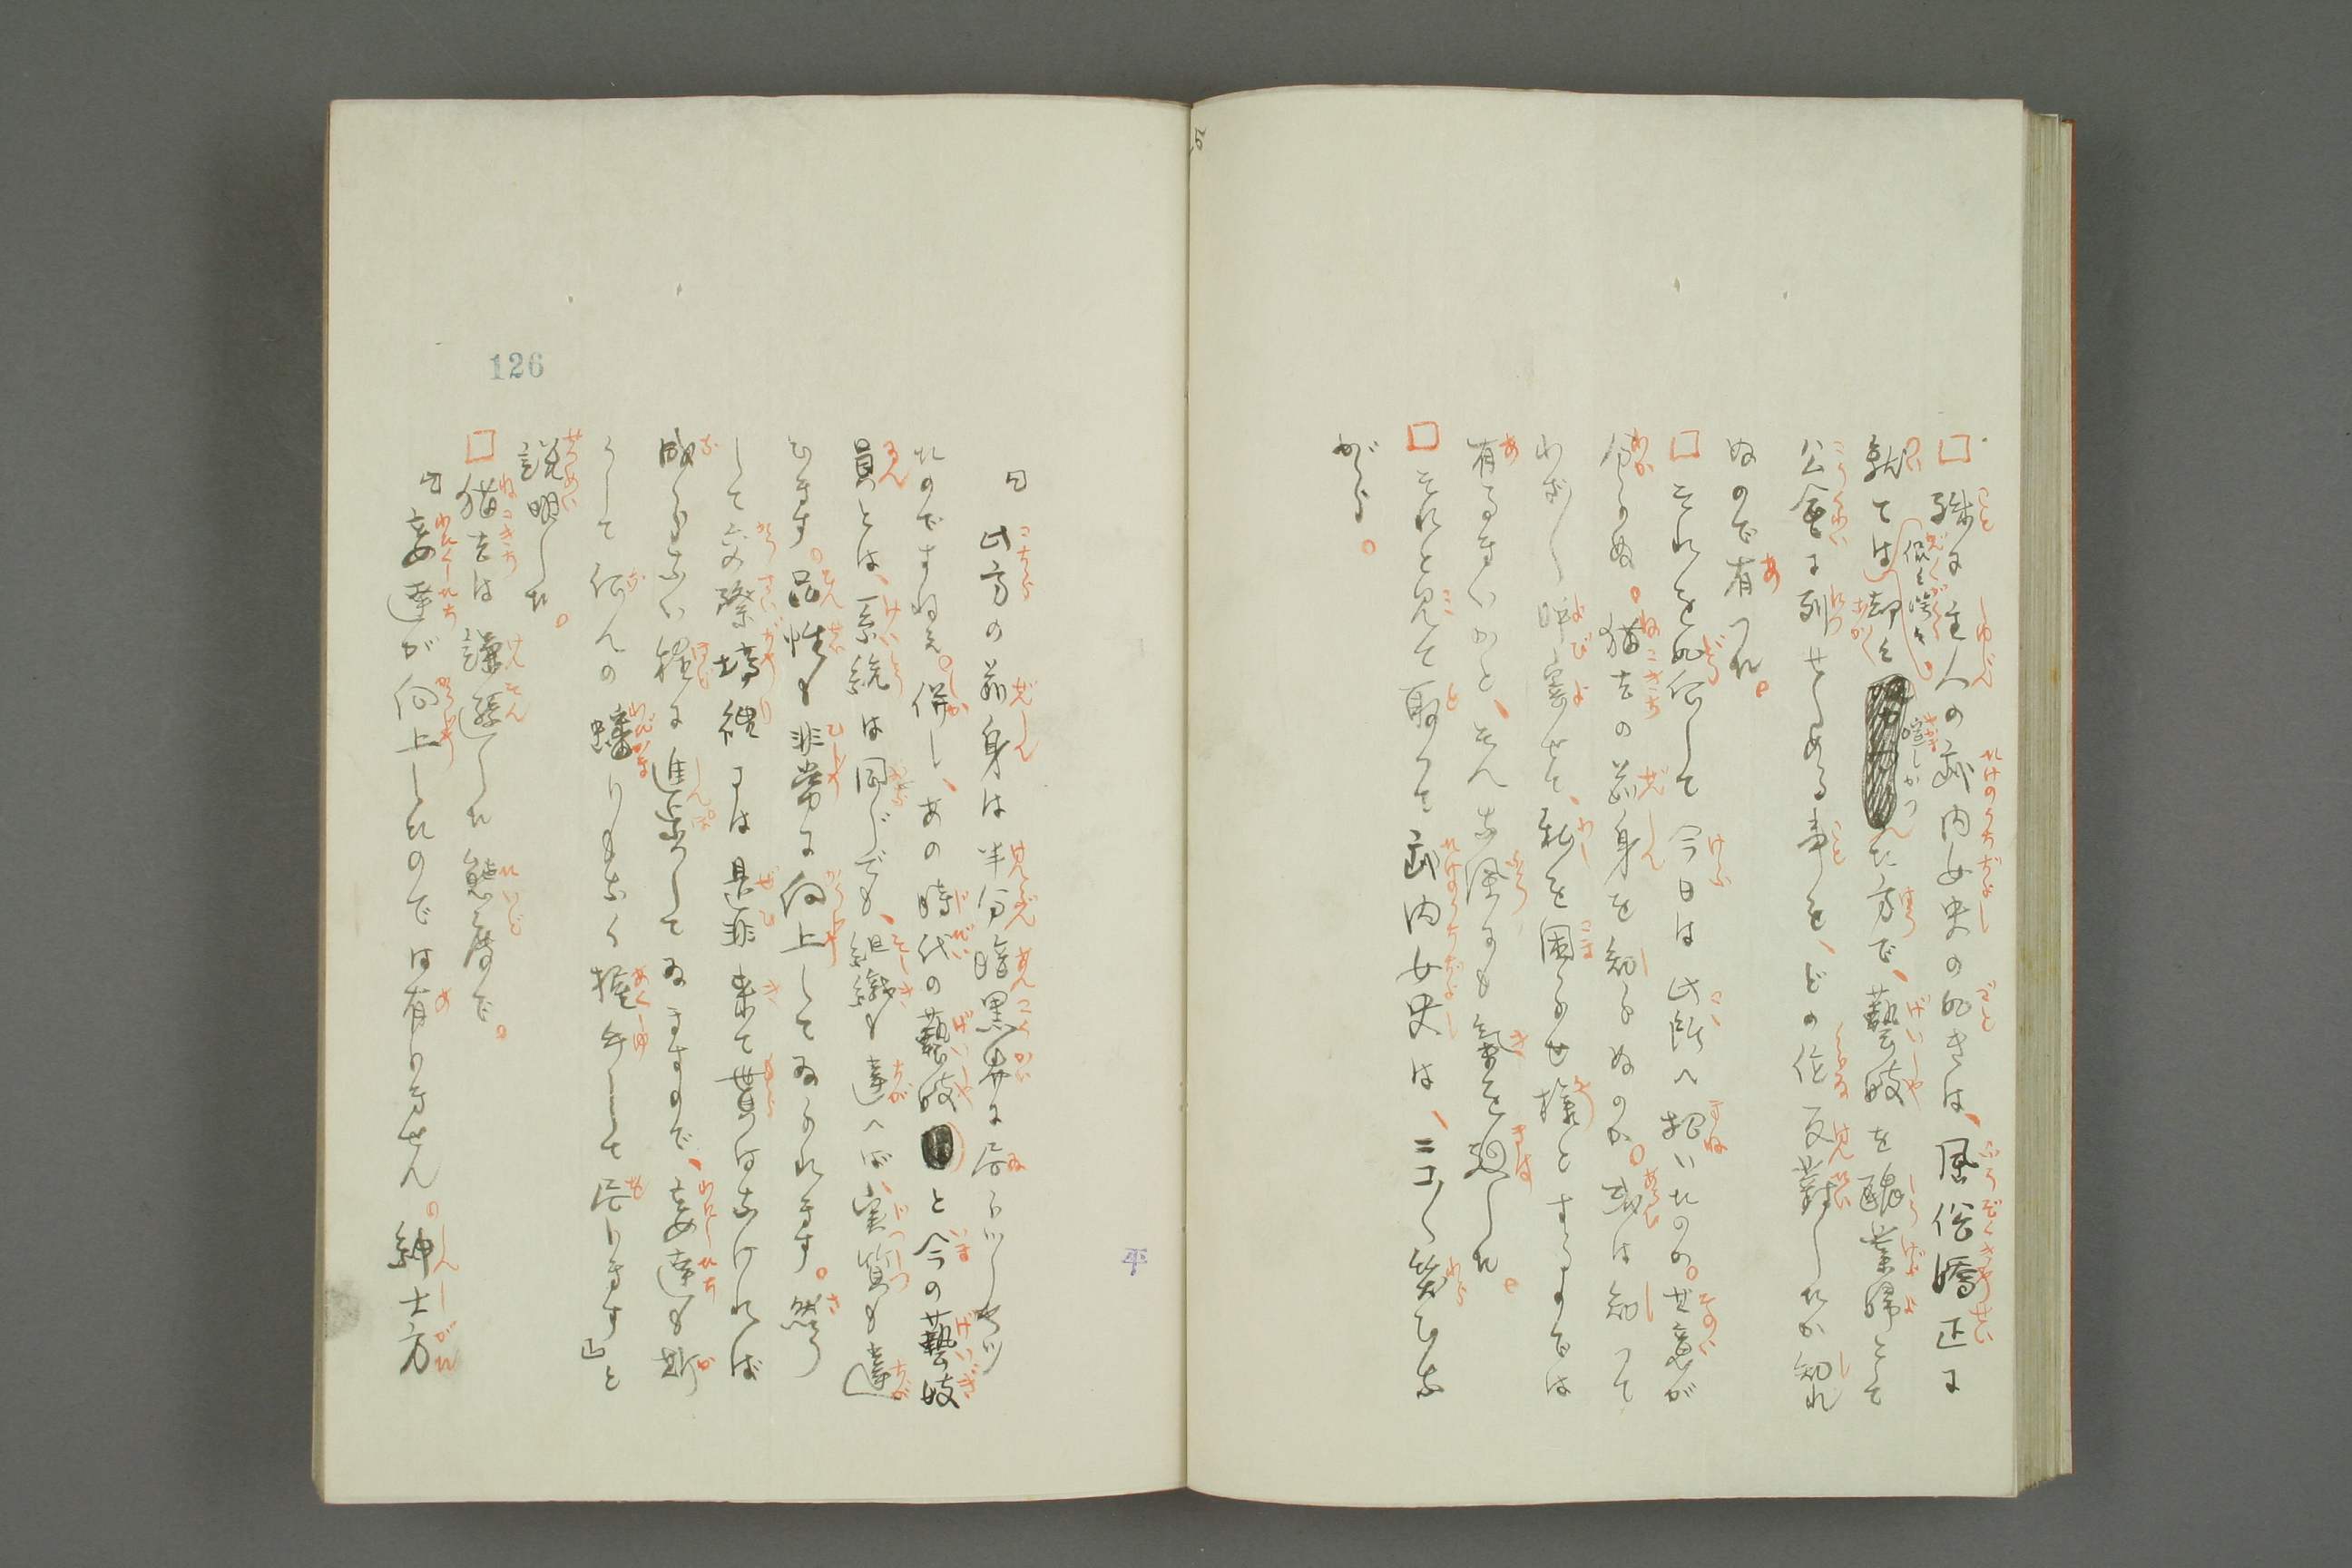 殊に主人の武内女史の如きは、風俗矯正に
就ては侃々諤々。却々喧しかつた方で、藝妓を醜業婦として
公會に列せしめる事を、どの位反對したか知れ
ぬので有つた。
それを如何して今日は此所へ招いたのか。其意が
分らぬ。猫吉の前身を知らぬのか。或は知つて
わざ〳〵呼び寄せて、私を困らせ様とするのでは
有るまいかと、そんな風にも氣を廻した。
それと見て取つて武内女史は、ニコ〳〵笑ひな
がら。
「此方の前身は半分暗黒界に居らツしやツ
たのですねえ。併し、あの時代の藝妓と今の藝妓
員とは、系統は同じでも、組織も違へば、実質も違
ひます。品性も非常に向上してゐられます。然う
して交際場裡には是非來て貰はなければ
成らない程に進歩してゐますので、妾達も斯
うして何んの蟠りもなく握手して居ります」と
説明した。
猫吉は謙遜した態度で。
「妾達が向上したのでは有りません。紳士方
126
平